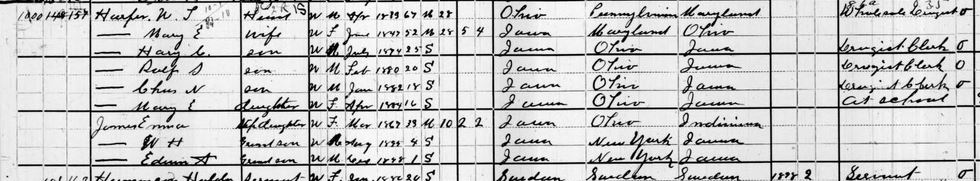 1000 148 157 Harper W. T Head W M Apr 1833 67 M 28 Ohio Pennsylvania Maryland Wholesale Drugist 0
— Mary E Wife W F June 1847 52 M 28 5 4 Iowa Maryland Ohio
— Hary C. son W M July 1874 25 S Iowa Ohio Iowa Drugist Clerk 0
— Ralf S son W M Feb 1880 20 S Iowa Ohio Iowa Drugist Clerk 0
— Chas N son W M Jan 1882 18 S Iowa Ohio Iowa Drugist Clerk 0
— Mary E daughter W F Apr 1884 16 S Iowa Ohio Iowa At school
James Emma Stepdaughter W F Mar 1867 33 M 10 2 2 Iowa Ohio Indiana
— W H Grandson W M Aug 4 S Iowa New York Iowa
— Edwin A Grandson W M 1898 1 S Iowa New York Iowa
Servant W F Jan 1880 20 S Sweden Sweden Sweden 1898 2 Servant 0